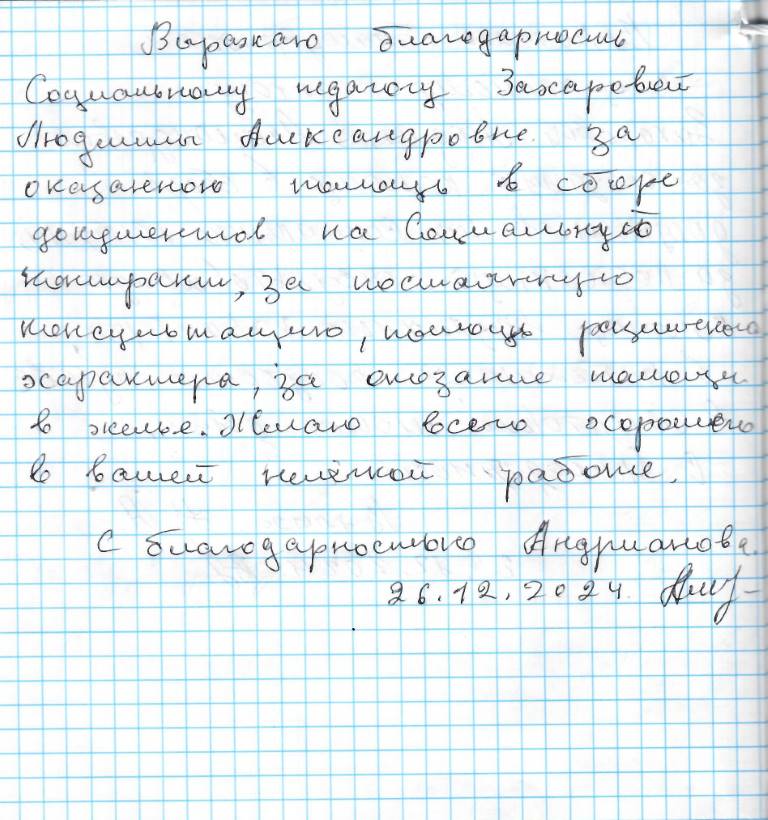 Выражаю благодарность
Социальному педагогу Захаровой
Людмилы Александровне за
оказанною помощь в сборе
документов на Социальную
контракт, за постаянную
консультацию, помощь различного
характера, за оказание помощи
в желье. Желаю всего хорошего
в вашей нелёгкой работе.
С благодарностью Андрианова.
26.12.2024